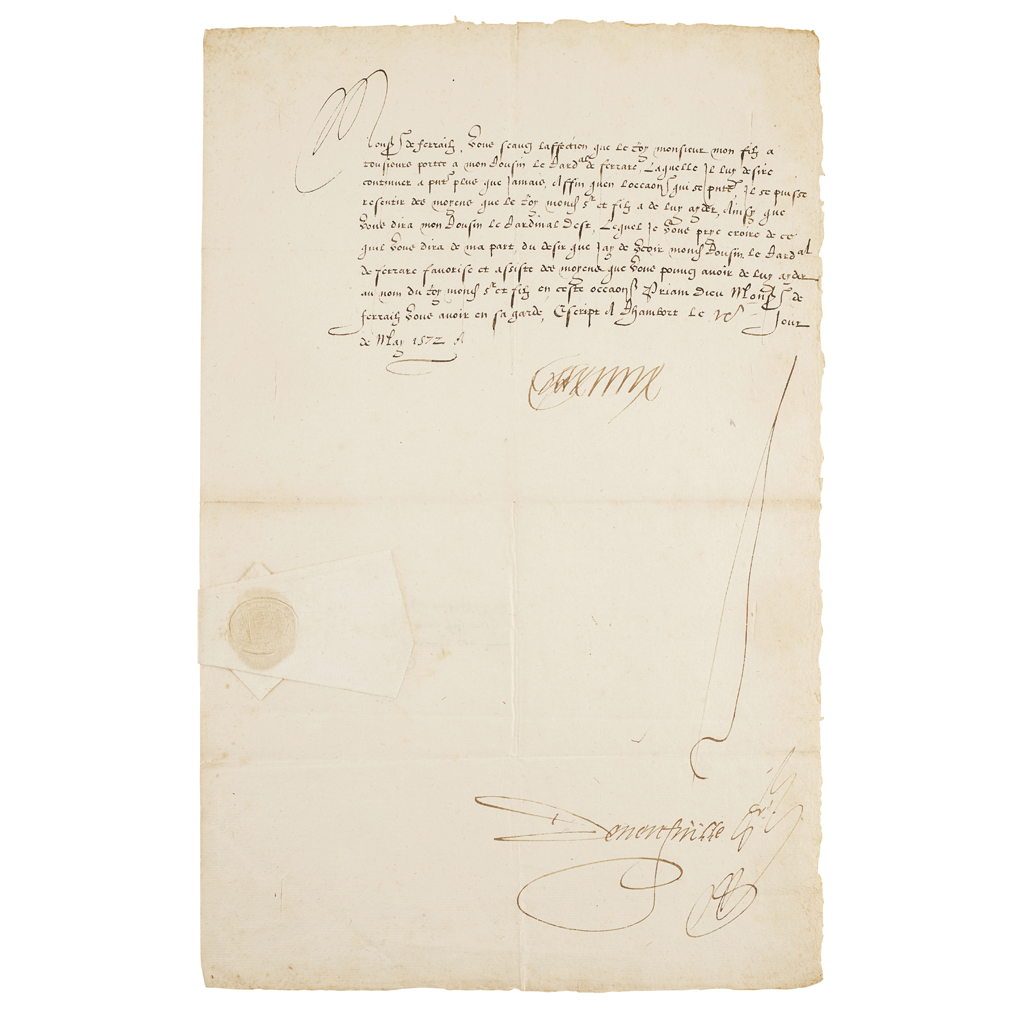 Mons.r de ferralz, Vous scavez laffection que le Roy monsieur mon filz a
tousiours portee a mon Cousin le Card.al de ferrare, Laquelle Il luy desire
continuer a pnt plus que Jamais, Affin quen loccaon qui se pnte, Il se puisse
resentir des moyens que le Roy mond s.r et filz a de luy ayder, Ainsy que
Vous dira mon Cousin le Cardinal dest, Lequel Je Vous prye croire de ce
quil Vous dira de ma part du desir que Jay de Veoir mond Cousin le Card.al
de ferrare favorise et assiste des moyens que Vous pouvez avoir de luy ayder
au nom du Roy mond s.r et filz en ceste occaon Priant Dieu Mons.r de
ferralz Vous avoir en sa garde, Escript A Chambort le Jour
de May 1572
Caterine
Deneufville